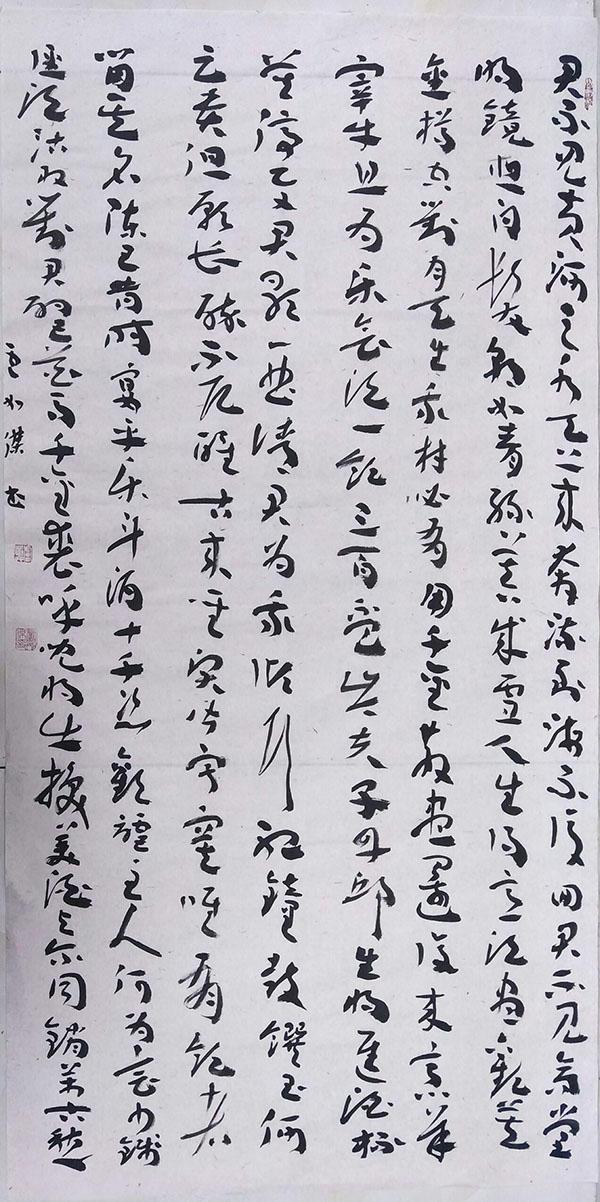 君不見黃河之水天上來奔流到海不復回君不見高堂
明鏡悲白髮朝如青絲暮成雪人生得意須盡歡莫
金樽空對月天生我材必有用千金散盡還復來烹羊
宰牛且為樂會須一飲三百杯岑夫子丹邱生將進酒杯
莫停与君歌一曲請君為我傾耳聽鐘鼓饌玉何
足貴但願長醉不願醒古來聖賢皆寂寞唯有飲者
留其名陳王昔時宴平樂斗酒十千恣歡謔主人何為言少錢
徑須沽取對君酌五花馬千金裘呼兒將出換美酒与爾同銷萬古愁